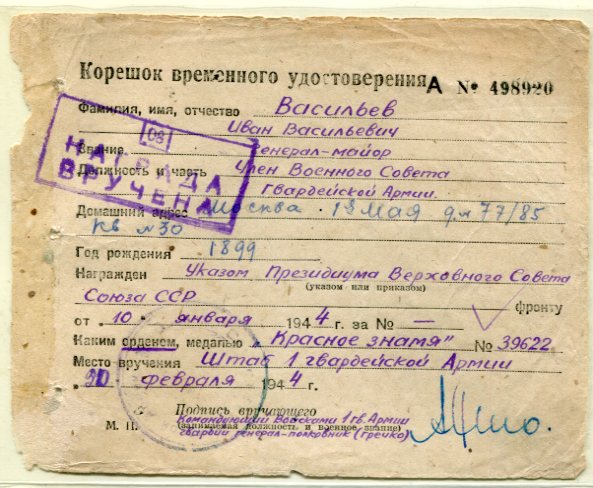 Корешок временного удостоверения А № 498920
Фамилия, имя, отчество Васильев
Иван Васильевич
08
НАГРАДА
ВРУЧЕНА
Звание генерал-майор
Должность и часть Член Военного Совета
Гвардейской Армии.
Домашний адрес Москва 1е Мая д № 77/85
кв №30
Год рождения 1899
Награжден Указом Президиума Верховного Совета
(указом или приказом)
Союза ССР фронту
от „10 " января 1944 г. за № —
Каким орденом, медалью „Красное знамя" № 39622
Место вручения Штаб 1 гвардейской Армии
„20 " февраля 1944 г.
Подпись вручающего
Командующий Войсками 1 гв. Армии
М. П. (занимаемая должность и военное звание)
гвардии генерал-полковник (Гречко)